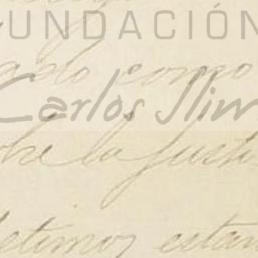 FUNDACIÓN
ado como
Carlos Slim
bre la Justi
letimos estam